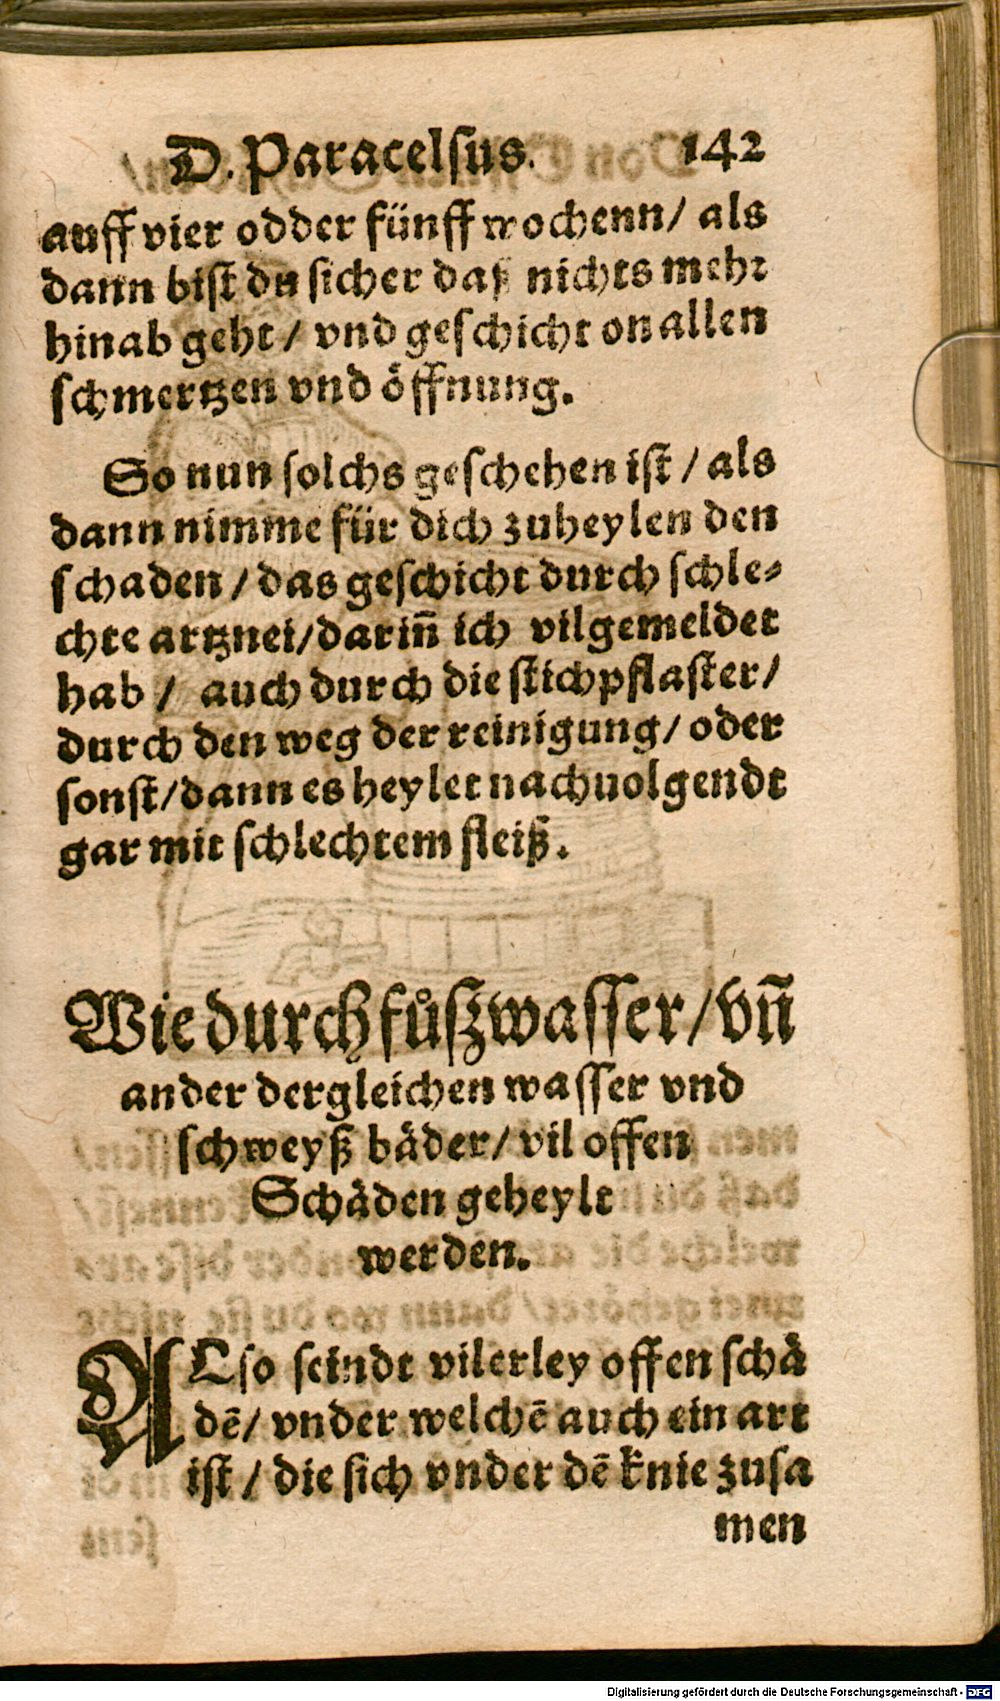 D. Paracelsus. 142
auff vier odder fünff wochenn/ als
dann bist du sicher daß nichts mehr
hinab geht / vnd geschicht on allen
schmertzen vnd öffnung.
So nun solchs geschehen ist / als
dann nimme für dich zuheylen den
schaden / das geschicht durch schle-
chte artznei/darin̄ ich vilgemeldet
hab / auch durch die stichpflaster/
durch den weg der reinigung/ oder
sonst/dann es heylet nachuolgendt
gar mit schlechtem fleiß.
Wie durch fůßwasser/ vn̄
ander dergleichen wasser vnd
schweyß bäder/ vil offen
Schäden geheylt
werden.
ALso seindt vilerley offen schä
dē/ vnder welchē auch ein art
ist / die sich vnder dē knie zusa
men
Digitalisierung gefördert durch die Deutsche Forschungsgemeinschaft - DFG